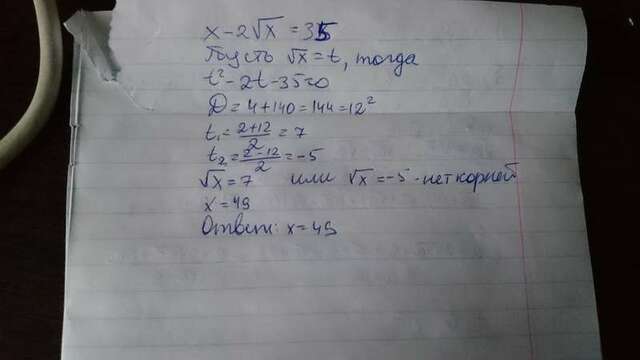 x - 2√x = 35
Пусть √x = t, тогда
t² - 2t - 35 = 0
D = 4 + 140 = 144 = 12²
t₁ = (2+12)/2 = 7
t₂ = (2-12)/2 = -5
√x = 7 или √x = -5 - нет корней
x = 49
Ответ: x = 49